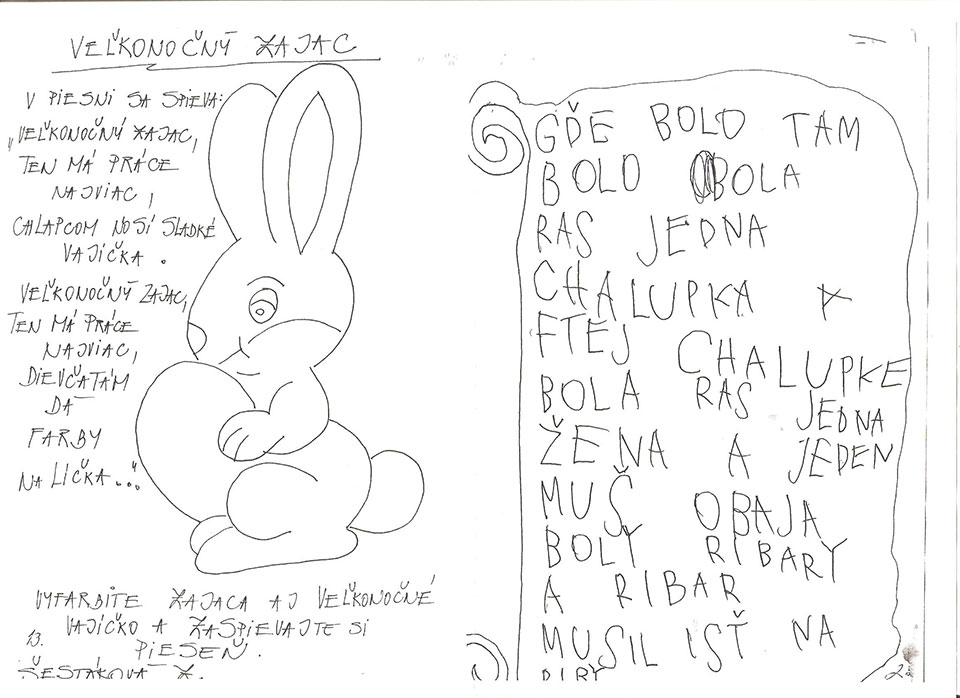 VEĽKONOČNÝ ZAJAC
V PIESNI SA SPIEVA:
„VEĽKONOČNÝ ZAJAC,
TEN MÁ PRÁCE
NAJVIAC,
CHLAPCOM NOSÍ SLADKÉ
VAJÍČKA.
VEĽKONOČNÝ ZAJAC,
TEN MÁ PRÁCE
NAJVIAC,
DIEVČATÁM
DÁ
FARBY
NA LÍČKA..."
VYFARBITE ZAJACA AJ VEĽKONOČNÉ
VAJÍČKO A ZASPIEVAJTE SI
13.
PIESEŇ.
ŠESTÁKOVÁ Z.
GĎE BOLO TAM
BOLO BOLA
RAS JEDNA
CHALUPKA A
FTEJ CHALUPKE
BOLA RAS JEDNA
ŽENA A JEDEN
MUŠ OBAJA
BOLY RIBARY
A RIBAR
MUSIL ISŤ NA
RIBY
2